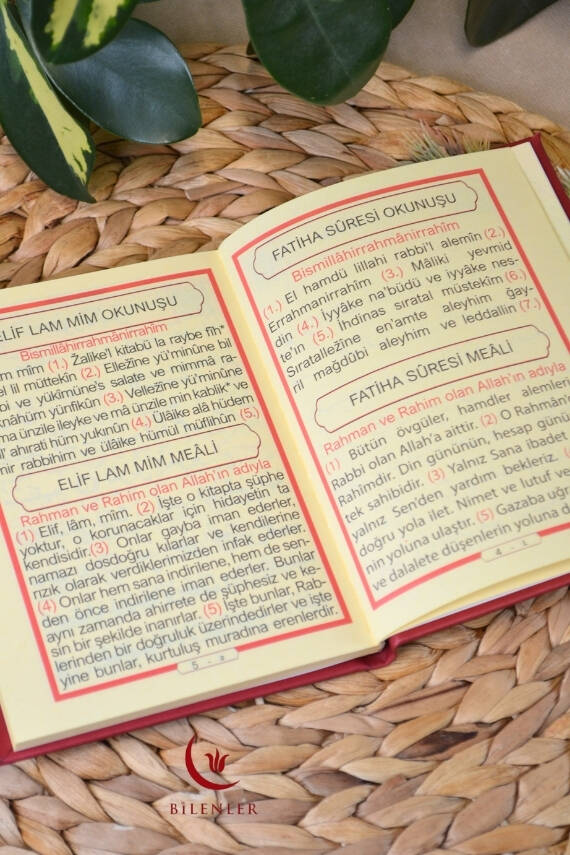 ELİF LAM MİM OKUNUŞU
Bismillâhirrahmânirrahîm
mîm (1.) Žalike'l kitâbü la raybe fîh*
lil müttekîn (2.) Ellezîne yü'minûne bil
ve yükîmûne's salate ve mimmâ ra-
knâhüm yünfikûn (3.) Vellezîne yü'minûne
ma ünzile ileyke ve mâ ünzile min kablik* ve
l' ahırati hüm yukınûn (4.) Ülâike alâ hüdem
rabbihim ve ülâike hümül müflihûn (5.)
ELİF LAM MİM MEÂLİ
Rahman ve Rahim olan Allah'ın adıyla
(1) Elif, lâm, mîm. (2) İşte o kitapta şüphe
yoktur, o korunacaklar için hidayetin ta
kendisidir.(3) Onlar gayba iman ederler,
namazı dosdoğru kılarlar ve kendilerine
rızık olarak verdiklerimizden infak ederler.
(4) Onlar hem sana indirilene, hem de sen-
den önce indirilene iman ederler. Bunlar
aynı zamanda ahirete de şüphesiz ve ke-
sin bir şekilde inanırlar. (5) İşte bunlar, Rab-
lerinden bir doğruluk üzerindedirler ve işte
yine bunlar, kurtuluş muradına erenlerdir.
FATİHA SÛRESİ OKUNUŞU
Bismillâhirrahmânirrahîm
(1.) El hamdü lillahi rabbi'l alemîn (2.)
Errahmanirrahîm (3.) Mâliki yevmid
din (4.) İyyâke na'büdü ve iyyâke nes-
te'în (5.) İhdinas sıratal müstekîm (6.)
Sıratallezîne en'amte aleyhim ğay-
ril mağdûbi aleyhim ve leddallin (7.)
FATİHA SÛRESİ MEÂLİ
Rahman ve Rahim olan Allah'ın adıyla
(1) Bütün övgüler, hamdler alemleri
Rabbi olan Allah'a aittir. (2) O Rahmân
Rahimdir. Din gününün, hesap günü
tek sahibidir. (3) Yalnız Sana ibadet
yalnız Sen'den yardım bekleriz.
doğru yola ilet. Nimet ve lutuf ve
nin yoluna ulaştır. (5) Gazaba uğra
ve dalalete düşenlerin yoluna d
BİLENLER